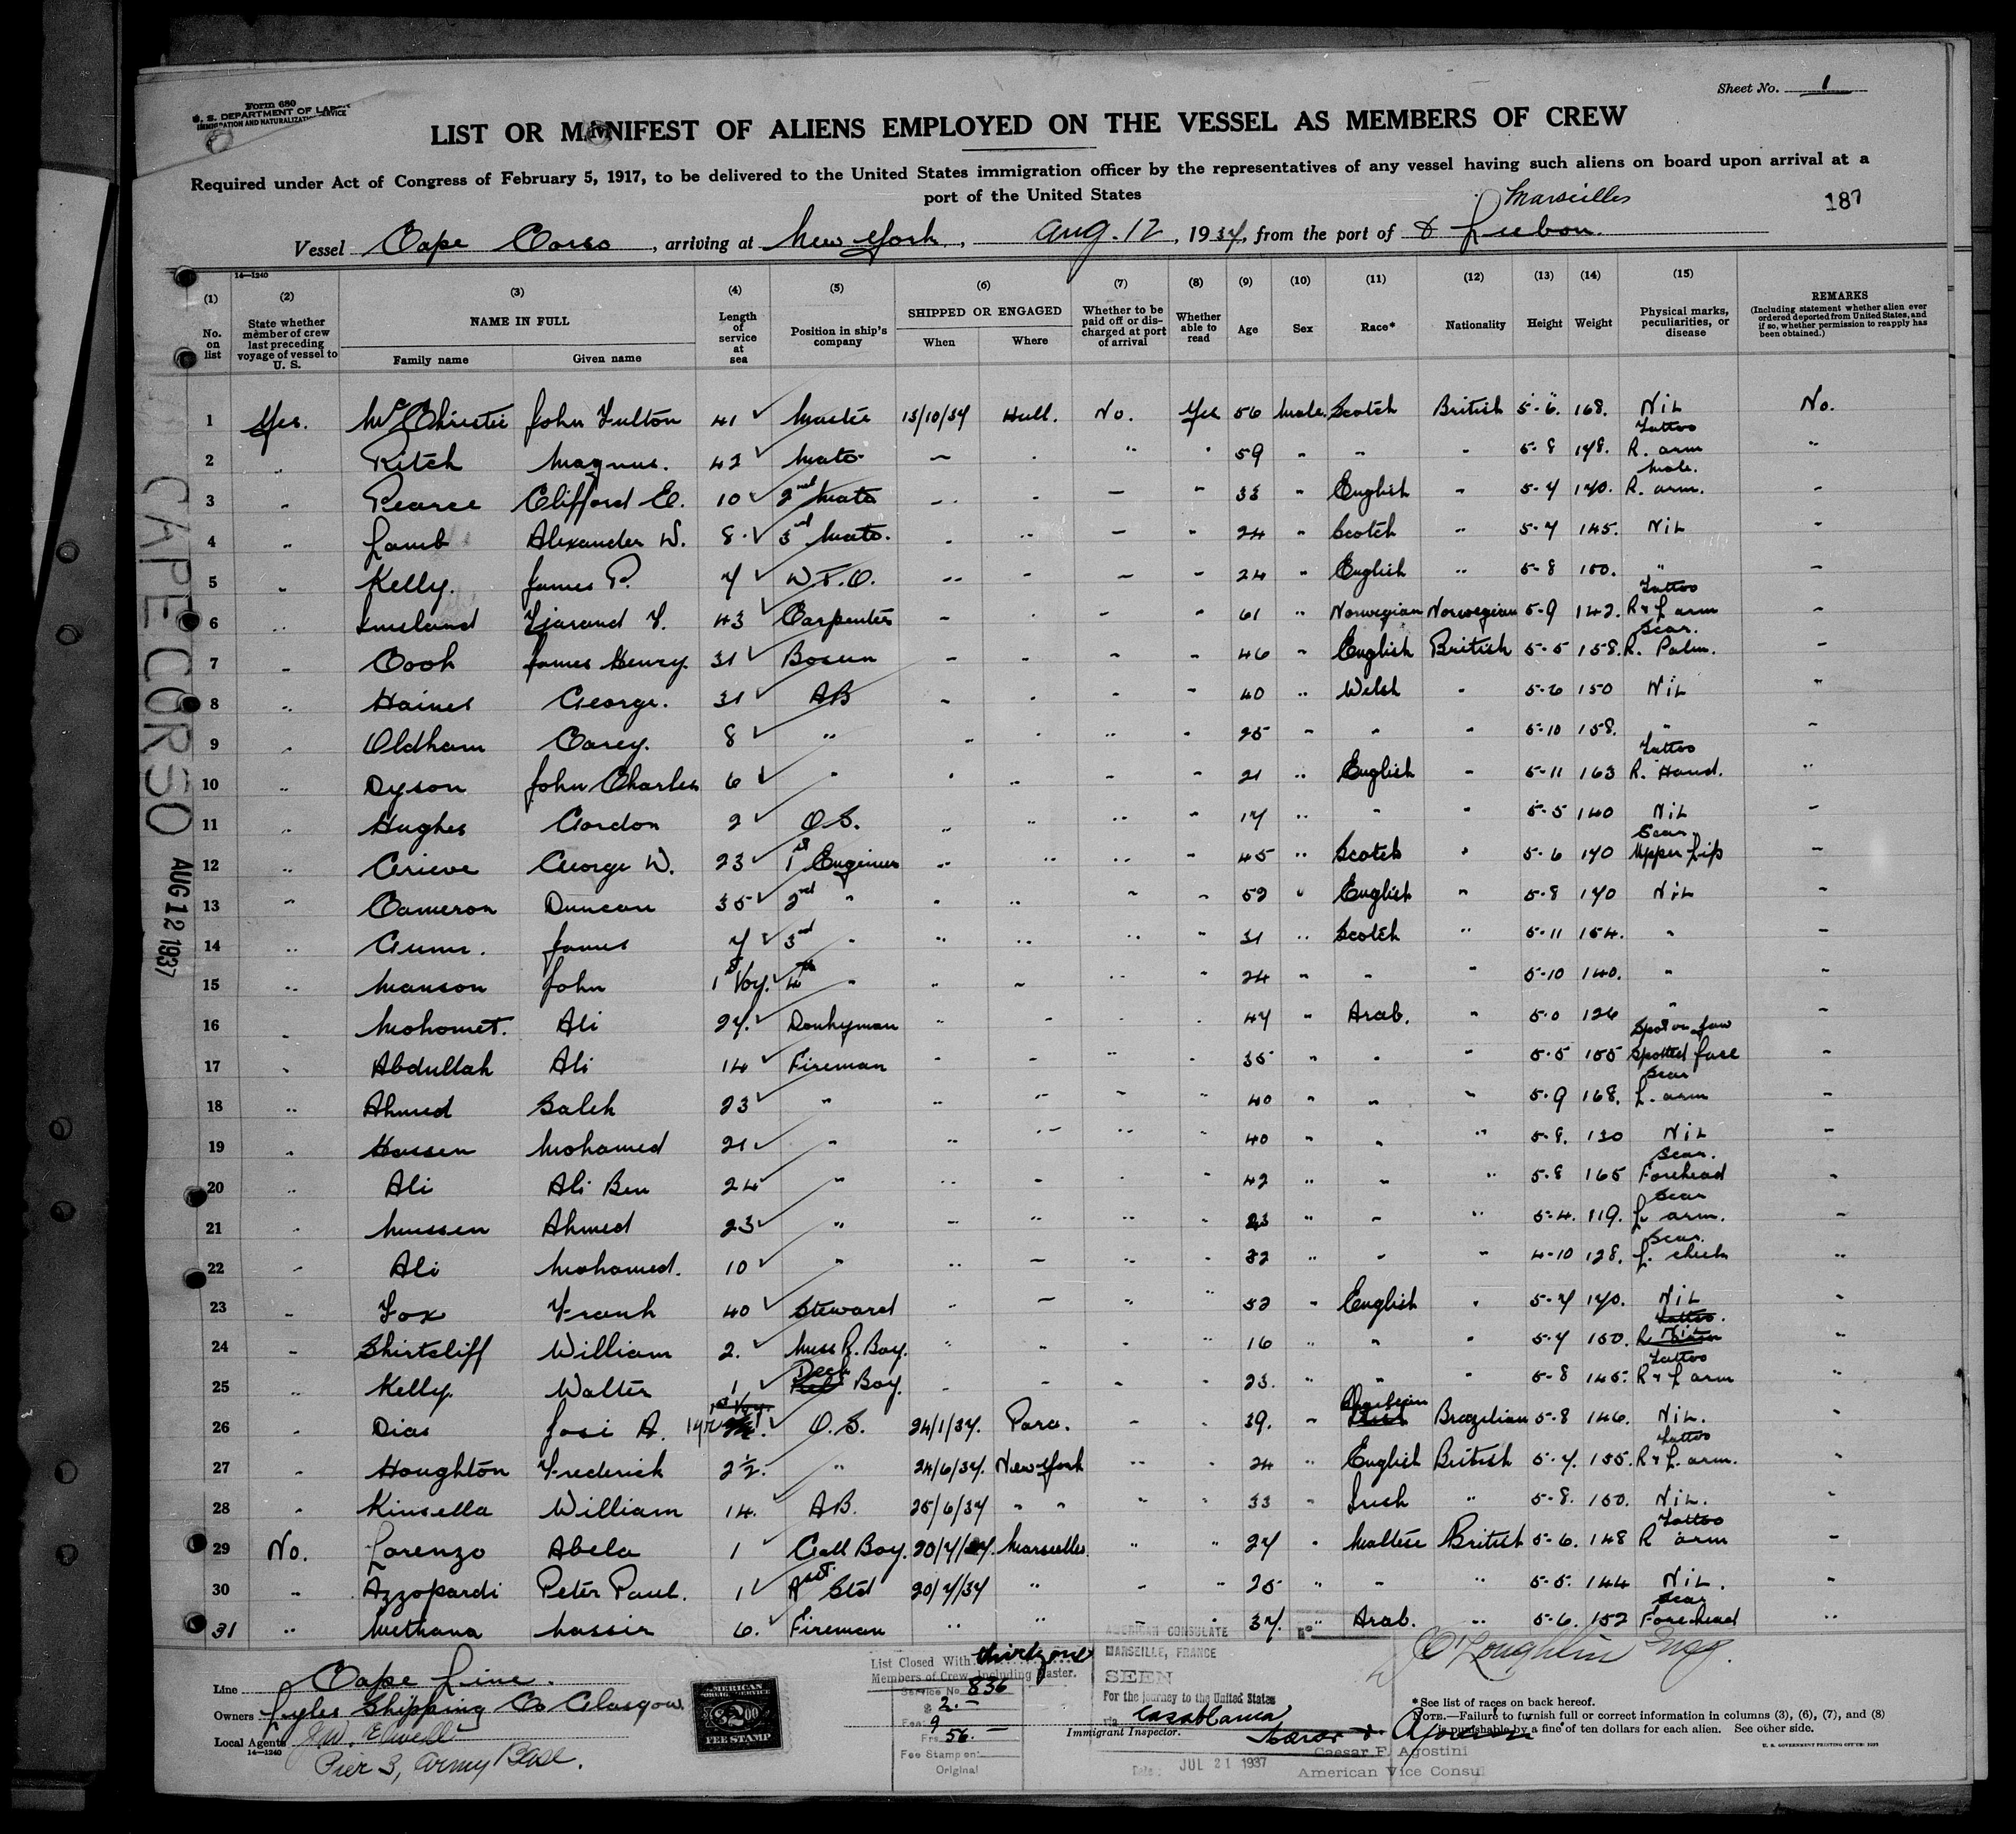 Form 680
U. S. DEPARTMENT OF LABOR
IMMIGRATION AND NATURALIZATION SERVICE
Sheet No. 1
LIST OR MANIFEST OF ALIENS EMPLOYED ON THE VESSEL AS MEMBERS OF CREW
Required under Act of Congress of February 5, 1917, to be delivered to the United States immigration officer by the representatives of any vessel having such aliens on board upon arrival at a
port of the United States
Marseilles
187
Vessel Cape Corso, arriving at New York, Aug. 12, 1937, from the port of & Lisbon.
14—1240
(1) No. on list
(2) State whether member of crew last preceding voyage of vessel to U. S.
(3) NAME IN FULL
Family name Given name
(4) Length of service at sea
(5) Position in ship's company
(6) SHIPPED OR ENGAGED
When Where
(7) Whether to be paid off or discharged at port of arrival
(8) Whether able to read
(9) Age
(10) Sex
(11) Race*
(12) Nationality
(13) Height
(14) Weight
(15) Physical marks, peculiarities, or disease
REMARKS (Including statement whether alien ever ordered deported from United States, and if so, whether permission to reapply has been obtained.)
1 Yes. McChristie John Fulton 41 Master 13/10/34 Hull. No. Yes 56 Male. Scotch British 5-6. 168. Nil No.
2 " Ritch Magnus. 42 Mate - " " " 59 " " " 5-8 148. Tattoo R. arm "
3 " Pearce Clifford E. 10 2nd Mate - " - " 33 " English " 5-7 170. Mole. R. arm. -
4 " Lamb Alexander W. 8. 3rd Mate. " " - " 24 " Scotch " 5-7 145. Nil -
5 " Kelly. James P. 7 W.T.O. " " - " 24 " English " 5-8 150. " -
6 " Tjarand T. 43 Carpenter - " - " 61 " Norwegian Norwegian 5-9 142. Tattoo R & L arm -
7 " Cook James Henry 31 Bosun - " " " 46 " English British 5-5 158. Scar. R. Palm. -
8 " Haines George. 31 AB " " " " 40 " Welsh " 5-6 150 Nil "
9 " Oldham Carey. 8 " " " " " 25 " " " 5-10 158. " "
10 " Dyson John Charles 6 " " " " " 21 " English " 5-11 163 Tattoo R. Hand. "
11 " Hughes Gordon 2 O.S. " " " " 17 " " " 5-5 140 Nil -
12 " Grieve George W. 23 1st Engineer " " " " 45 " Scotch " 5-6 170 Scar Upper Lip -
13 " Cameron Duncan 35 2nd " " " " " 52 " English " 5-8 170 Nil -
14 " Gunn. James 7 3rd " " " " " 31 " Scotch " 5-11 154. " -
15 " Manson John 1st Voy. 4th " " " " " 24 " " " 5-10 140. " -
16 " Mohomet. Ali 27. Donkyman " " " " 47 " Arab. " 5-0 126 " -
17 " Abdullah Ali 14 Fireman " " " " 35 " " " 5-5 155 Spotted face -
18 " Ahmed Saleh 23 " " " " " 40 " " " 5-9 168. Scar L. arm -
19 " Hassen Mohamed 21 " " " " " 40 " " " 5-8. 130 Nil -
20 " Ali Ali Ben 24 " " " " " 42 " " " 5-8 165 Scar. Forehead -
21 " Mussen Ahmed 23 " " " " " " " " 5-4. 119. Scar L. arm. -
22 " Ali Mohamed. 10 " " " " " 32 " " " 4-10 128. Scar. L. cheek "
23 " Fox Frank 40 Steward " " " " 52 " English " 5-7 170. Nil "
24 " Shirtcliff William 2. Mess R. Boy. " " " " 16 " " " 5-7 150. Nil "
25 " Kelly. Walter 1 Deck Boy. " " " " 23. " " " 5-8 145. Tattoo R & L arm "
26 " Dias Josi A. O.S. 24/1/37. Para. " " 39. " Brazilian 5-8 146. Nil. "
27 " Houghton Frederick 2½. " 24/6/37. New York " " 24 " English British 5-7. 155. Tattoo R & L. arm. "
28 " Kinsella William 14. AB. 25/6/37 " " " " 33 " Irish " 5-8. 150. Nil. "
29 No. Lorenzo Abela 1 Gall Boy. 20/7/37. Marseilles. " " 27 " Maltese British 5-6. 148 Tattoo R arm -
30 " Azzopardi Peter Paul. 1 Asst. Std 20/7/37 " " " 25 " " " 5-5. 144 Nil. "
31 " Muthana Nassir 6. Fireman " " " " 37. " Arab. " 5-6. 152 Scar Forehead "
CAPE CORSO
AUG 12 1937
Line Cape Line.
Owners Lyles Shipping Co Glasgow
Local Agents J.W. Elwell
14—1240
Pier 3, Army Base.
AMERICAN
$2.00
FEE STAMP
List Closed With thirty one
Members of Crew, Including Master.
Service No. 836
$ 2.-
Frs. 56.-
Fee Stamp on
Original
AMERICAN CONSULATE
MARSEILLE, FRANCE
SEEN
For the journey to the United States
via Casablanca
Immigrant Inspector.
Date: JUL 21 1937
Caesar F. Agostini
American Vice Consul
O'Loughlin
*See list of races on back hereof.
NOTE.—Failure to furnish full or correct information in columns (3), (6), (7), and (8)
is punishable by a fine of ten dollars for each alien. See other side.
U. S. GOVERNMENT PRINTING OFFICE